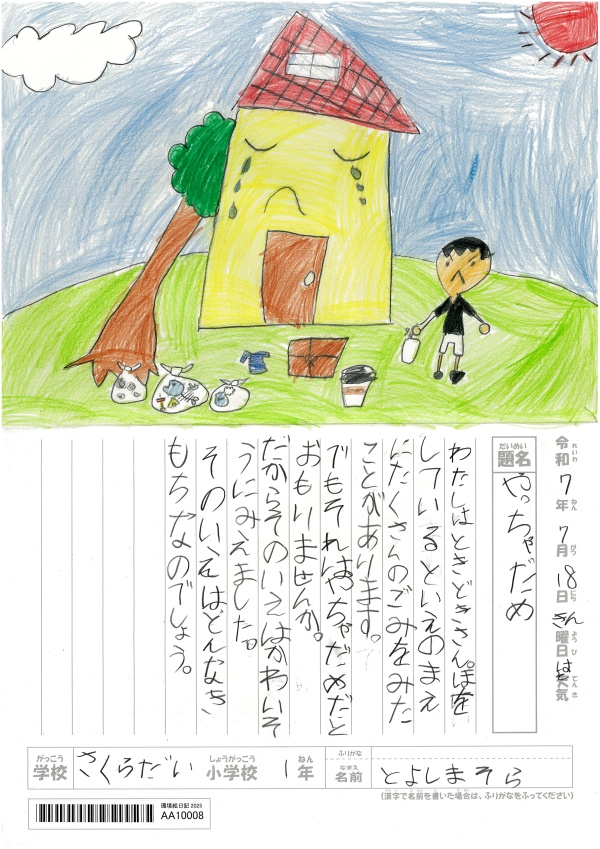 令和7年7月18日きん曜日はれ天気
れいわ ねん がつ にち ようび てんき
だいめい
題名
やっちゃだめ
わたしはときどきさんぽを
しているといえのまえ
にたくさんのごみをみた
ことがあります。
でもそれはやっちゃだめだと
おもいませんか。
だからそのいえはかわいそ
うにみえました。
そのいえはどんなき
もちなのでしょう。
がっこう
学校
さくらだい
しょうがっこう
小学校
1年
ねん
ふりがな
なまえ
名前
とよしまそら
(漢字で名前を書いた場合は、ふりがなをふってください)
環境絵日記 2025
AA10008